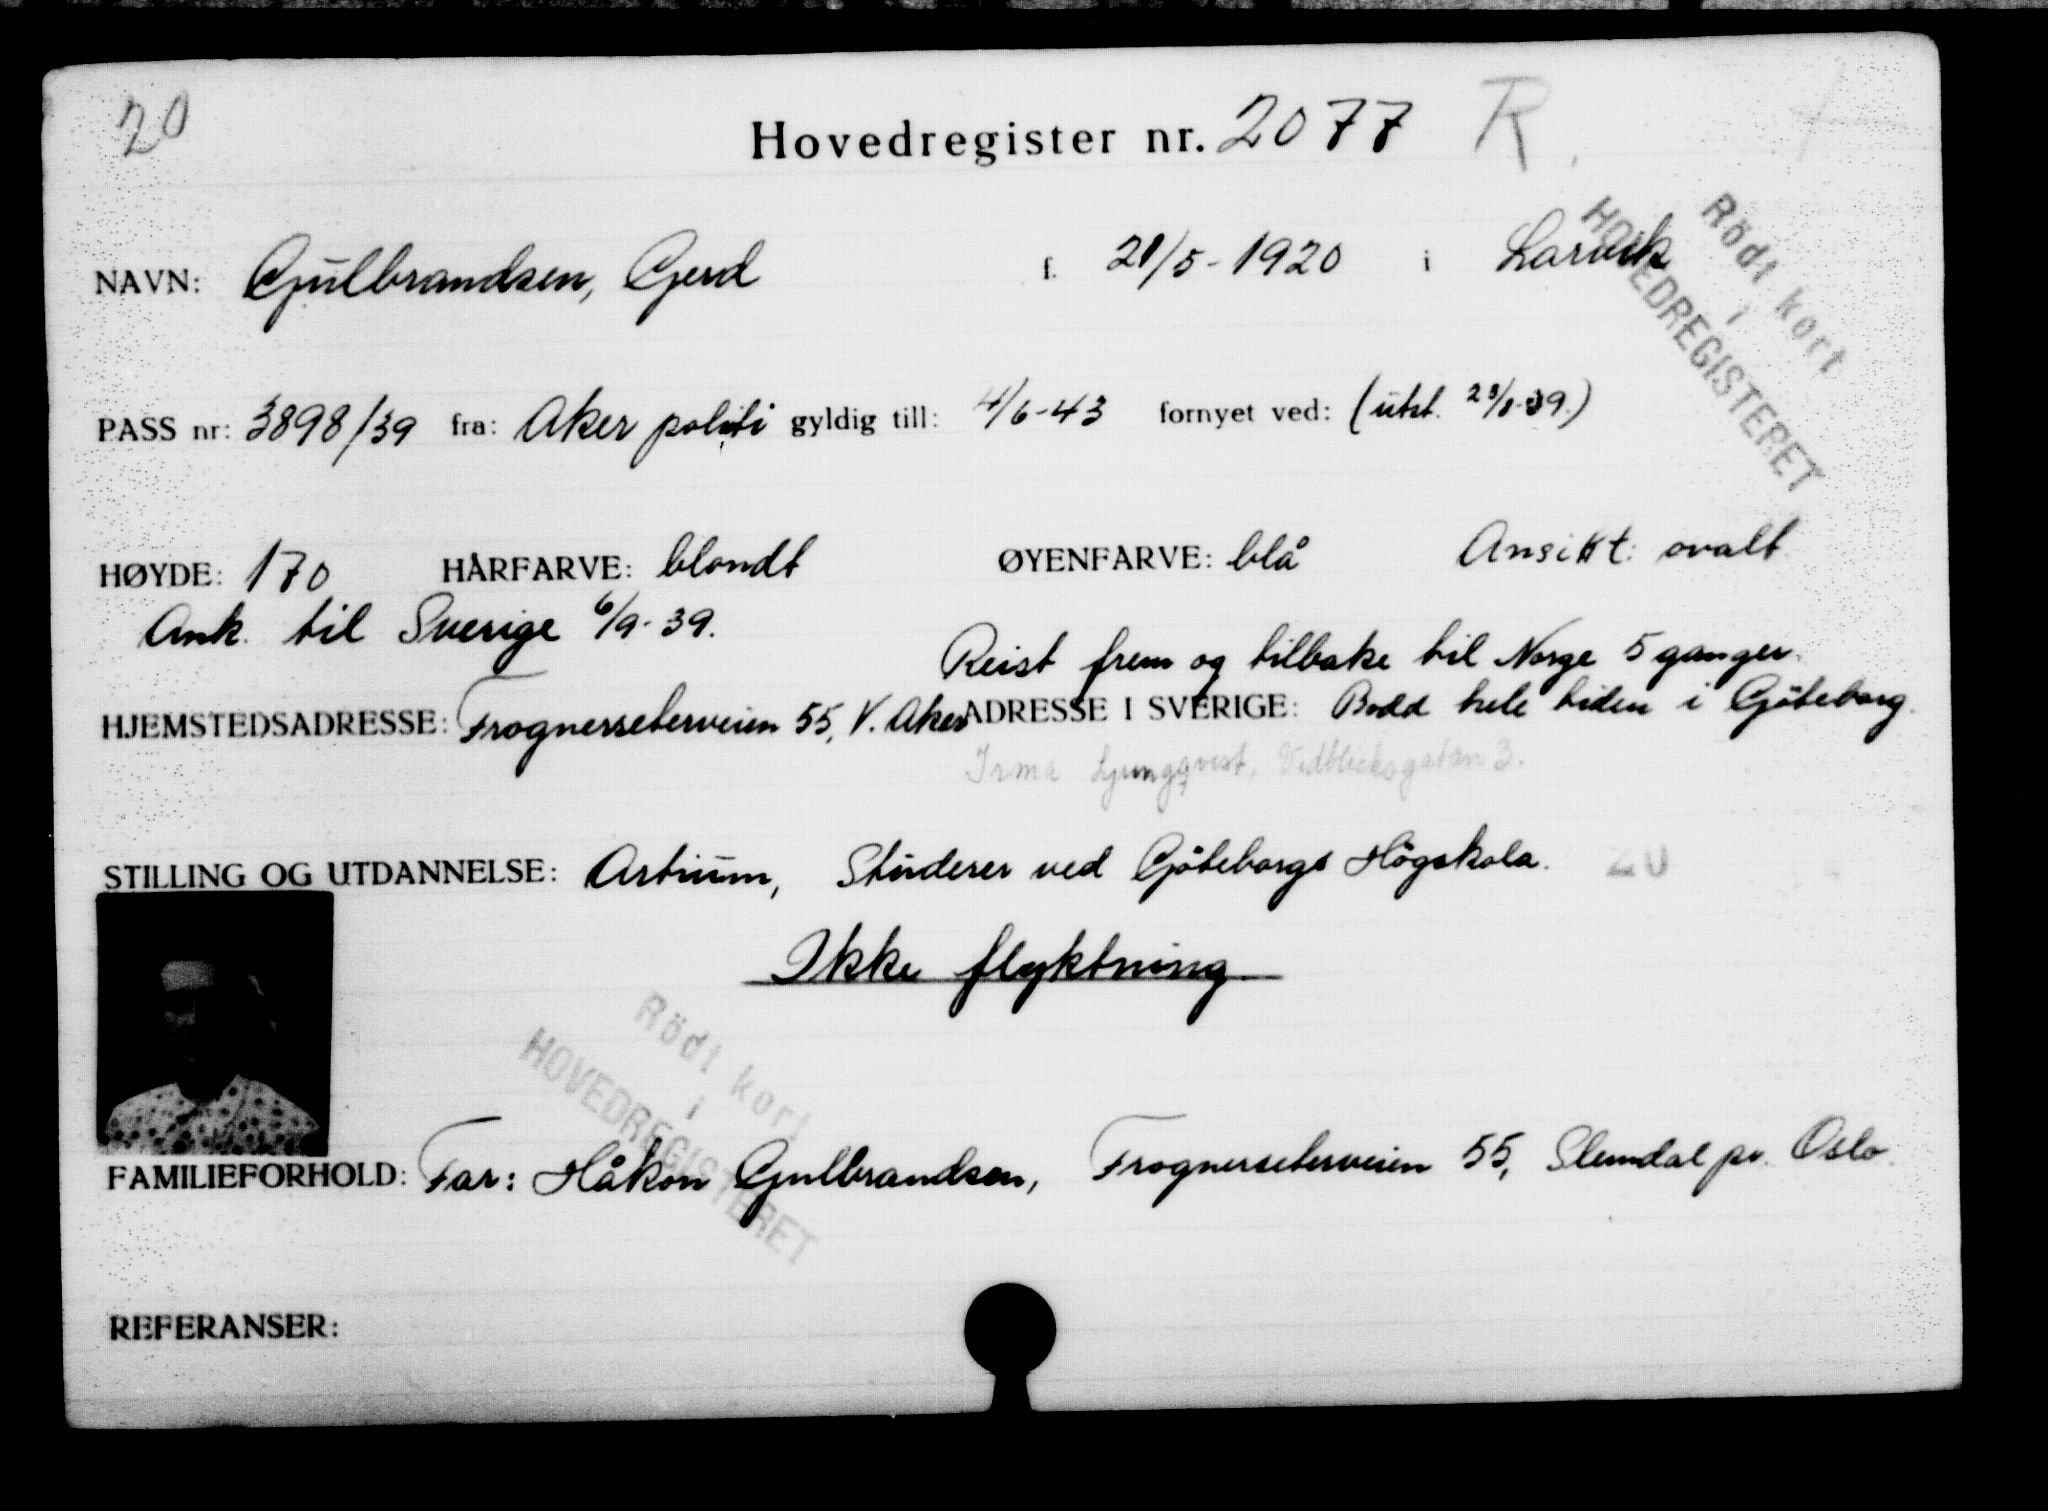 20
Hovedregister nr. 2077 R.
Rödt kort
i
HOVEDREGISTERET
NAVN: Gulbrandsen, Gerd f. 21/5-1920 i Larvik
PASS nr: 3898/39 fra: Aker politi gyldig till: 4/6-43 fornyet ved: (utst. 23/8-39.)
HØYDE: 170 HÅRFARVE: blondt ØYENFARVE: blå Ansikt: ovalt
Ank. til Sverige 6/9-39.
Reist frem og tilbake til Norge 5 ganger.
HJEMSTEDSADRESSE: Frognerseterveien 55, V. Aker ADRESSE I SVERIGE: Bodd hele tiden i Göteborg.
Irma Ljungqvist, Vidblicksgatan 3.
STILLING OG UTDANNELSE: Artium, Studerer ved Göteborgs Högskola. 20
Ikke flyktning
Rödt kort
i
HOVEDREGISTERET
FAMILIEFORHOLD: Far: Håkon Gulbrandsen, Frognerseterveien 55, Slemdal pr. Oslo.
REFERANSER: